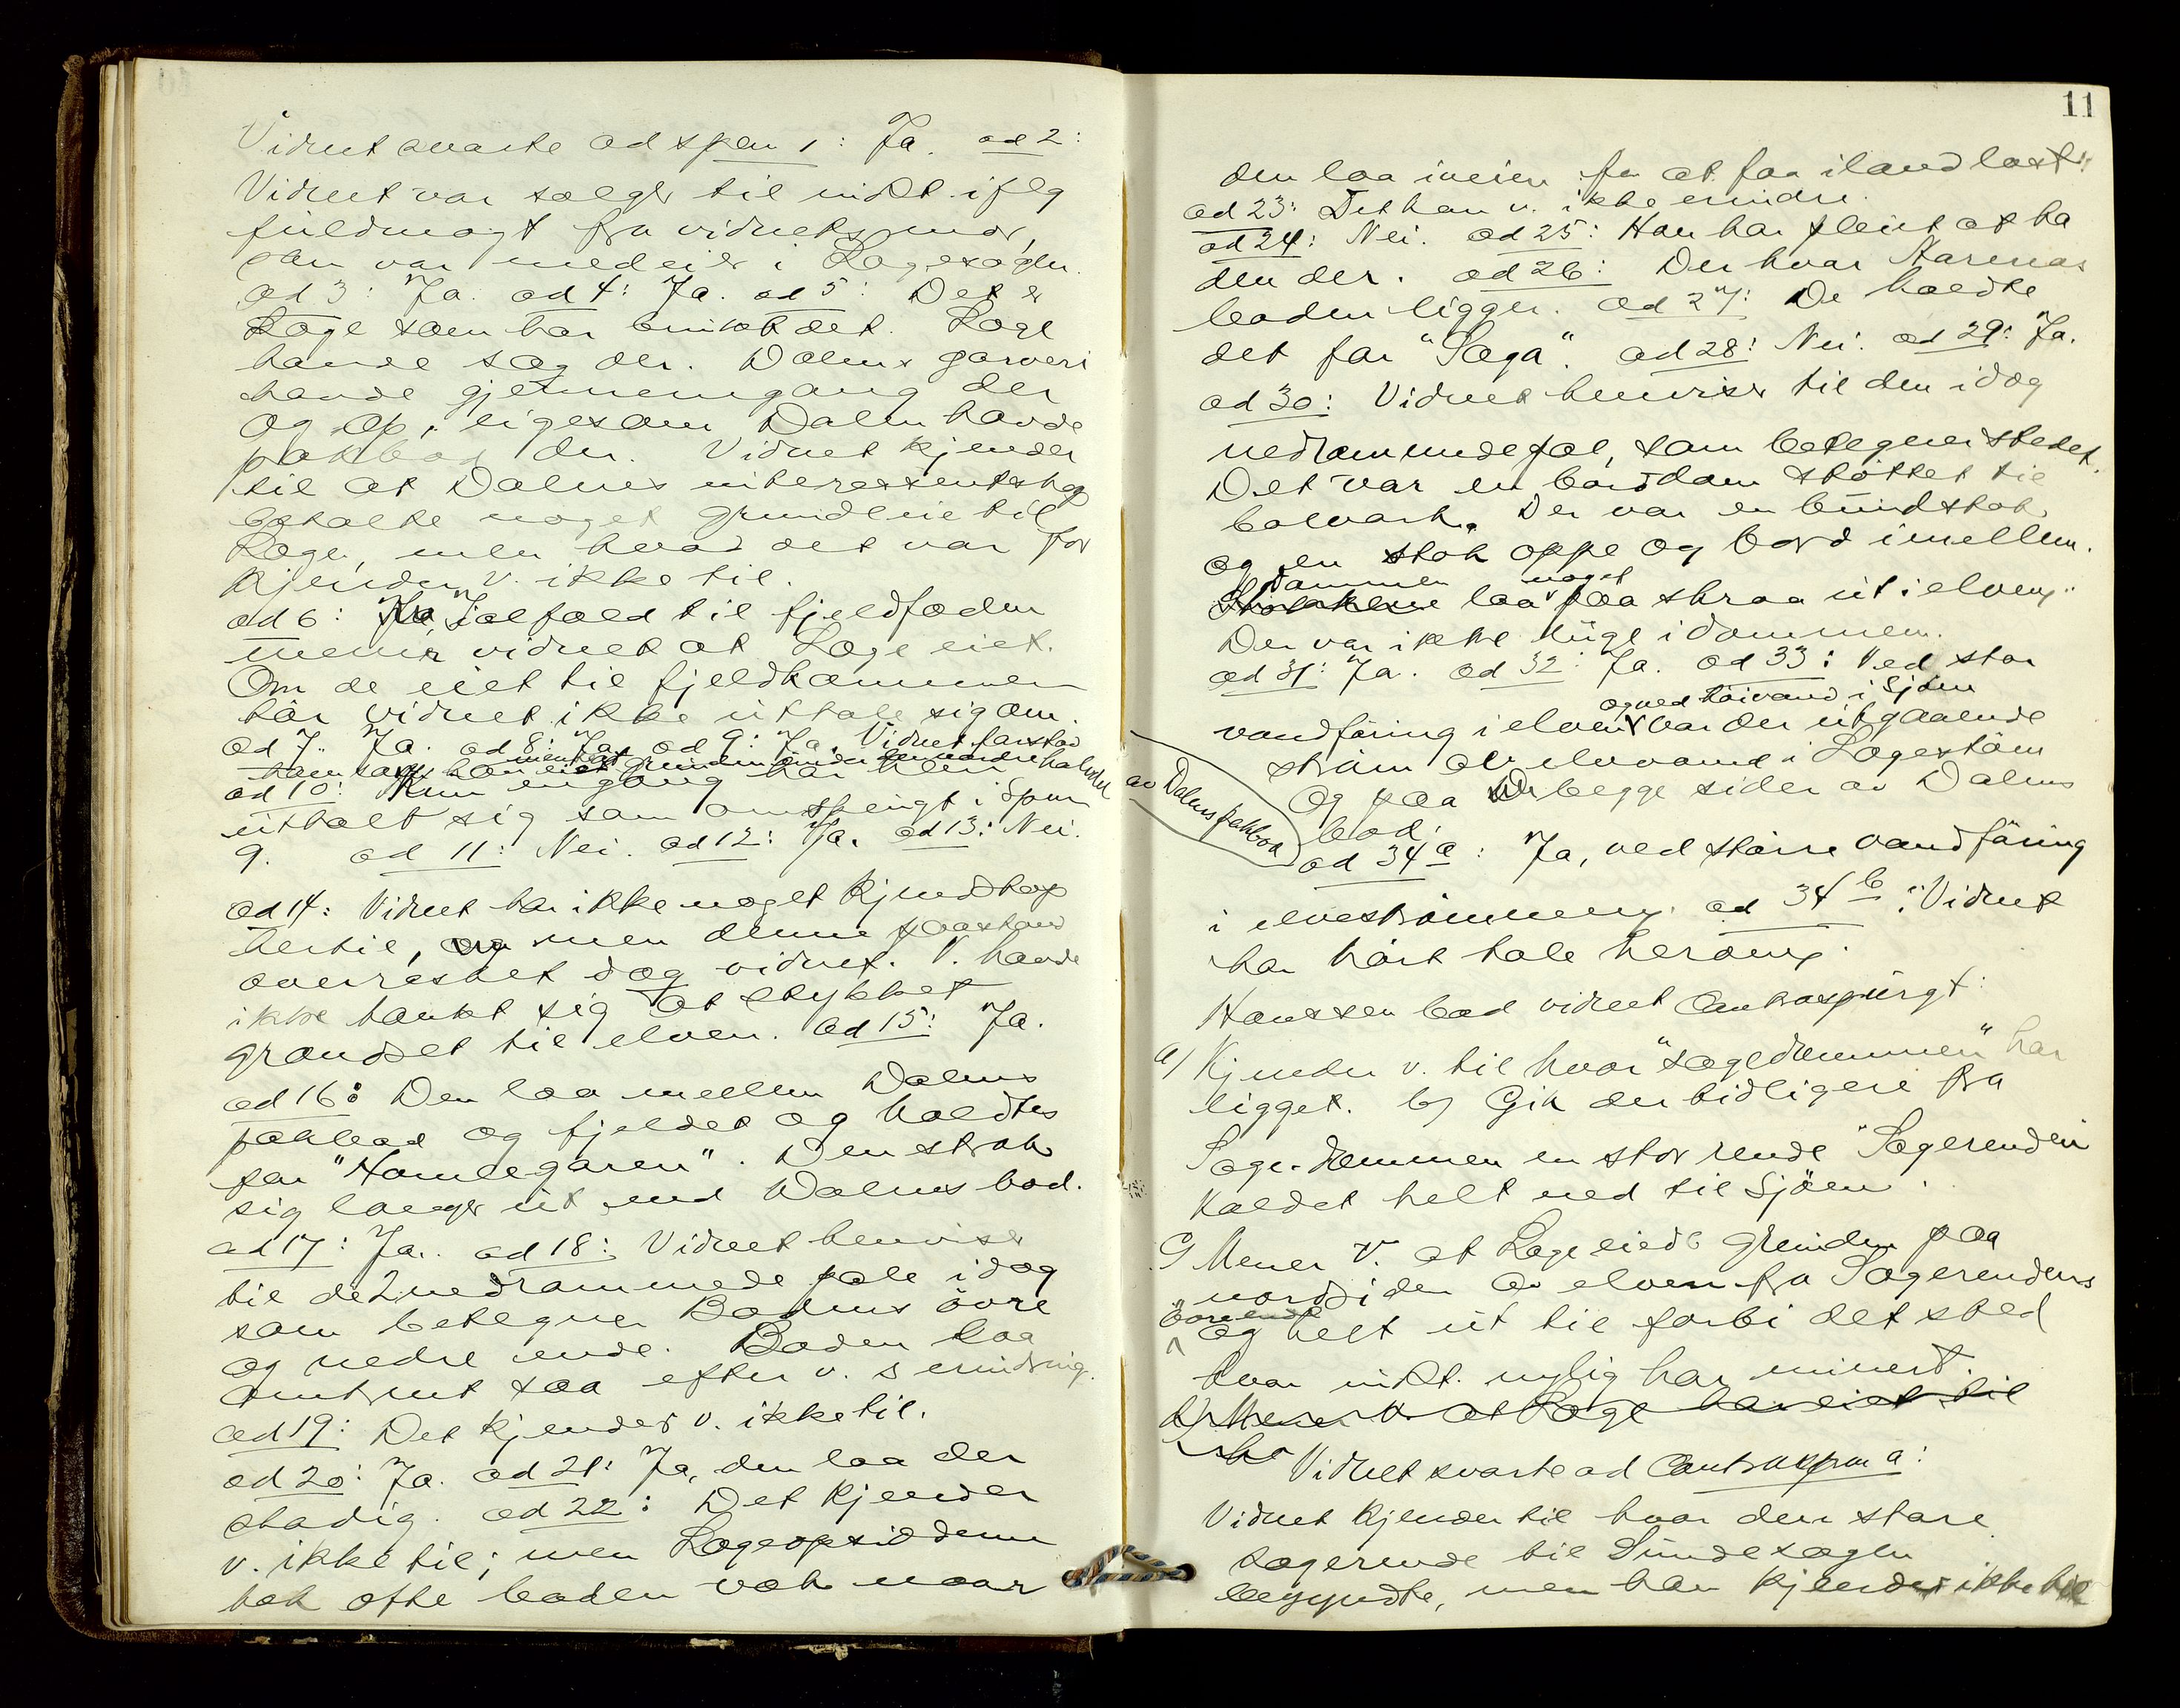 Vidnet svarte ad spm 1: Ja. ad 2:
Vidnet var sælger til indst. iflg
fuldmagt fra vidnets mor,
som var medeier i Lagesagen.
ad 3: Ja. ad 4: Ja. ad 5: Det er
Lage som har benyttet det. Lage
havde sag der. Dalens garveri
havde gjennemgang der
og op, ligesom Dalen havde
pakbod der. Vidnet kjender
til at Dalens interessentskap
betalte noget grundleie til
Lage, men hvad det var for
kjender v. ikke til.
ad 6: Ialfald til fjeldfoden
mener vidnet at Lage eiet.
Om de eiet til fjeldkammen
tör vidnet ikke uttale sig om.
ad 7: Ja. ad 8: Ja. ad 9: Ja. Vidnet forstod
ham saa, han eiet grunden under den nordre halvdel
ad 10: Kun engang har han
uttalt sig som omspurgt i Spm
9. ad 11: Nei. ad 12: Ja. ad 13: Nei.
ad 14: Vidnet har ikke noget kjendskap
hertil, men denne paastand
overrasket dog vidnet. V. havde
ikke tænkt sig at stykket
grændset til elven. ad 15: Ja.
ad 16: Den laa mellem Dalens
pakbod og fjeldet og kaldtes
for "Hamlegaren". Den strak
sig længer ut end Dalens bod.
ad 17: Ja. ad 18: Vidnet henviser
til de 2 nedrammede pæle idag
som betegner Bodens övre
og nedre ende. Boden laa
omtrent saa efter v.s erindring.
ad 19: Det kjender v. ikke til.
ad 20: Ja. ad 21: Ja, den laa der
stadig. ad 22: Det kjender
v. ikke til; men Lageopsidderne
tok ofte baden væk naar
11
den laa iveien for at faa iland last.
ad 23: Det kan v. ikke erindre.
ad 24: Nei. ad 25: Han har pleiet at ha
den der. ad 26: Der hvor Aarenas
boden ligger. ad 27: De kaldte
det for "Saga". ad 28: Nei. ad 29: Ja.
ad 30: Vidnet henviser til den idag
nedrammede pæl, som betegner stedet.
Det var en borddam stöttet til
bolværk. Der var en bundstok
og en stok oppe og bord imellem.
Dammen noget
Stokkene laa paa skraa ut i elven.
Der var ikke luge i dammen.
ad 31: Ja. ad 32: Ja. ad 33: Ved stor
og ved höivand i Sjöen
vandföring i elven var der utgaaende
ström av elvevand i Lagestöen
og paa begge sider av Dalens
av Dalens pakbod
bod.
ad 34a: Ja, ved större vandföring
i elveströmmen. ad 34b: Vidnet
har hört tale herom.
Hanssen bad vidnet contraspurgt:
a) Kjender v. til hvor "sagedemmen" har
ligget. b) Gik der tidligere fra
Sage-demmen en stor rende "Sagerenden"
kaldet helt ned til Sjöen.
c) Mener v. at Lage eiede grunden paa
nordsiden av elven fra Sagerendens
övre ende
og helt ut til forbi det sted
hvor indst. nylig har minert.
d) Mener v. at Lage har eiet til
Vidnet svarte ad Contraspm a:
Vidnet kjender til hvor den store
sagerende til Sundesagen
begyndte, men han kjender ikke til